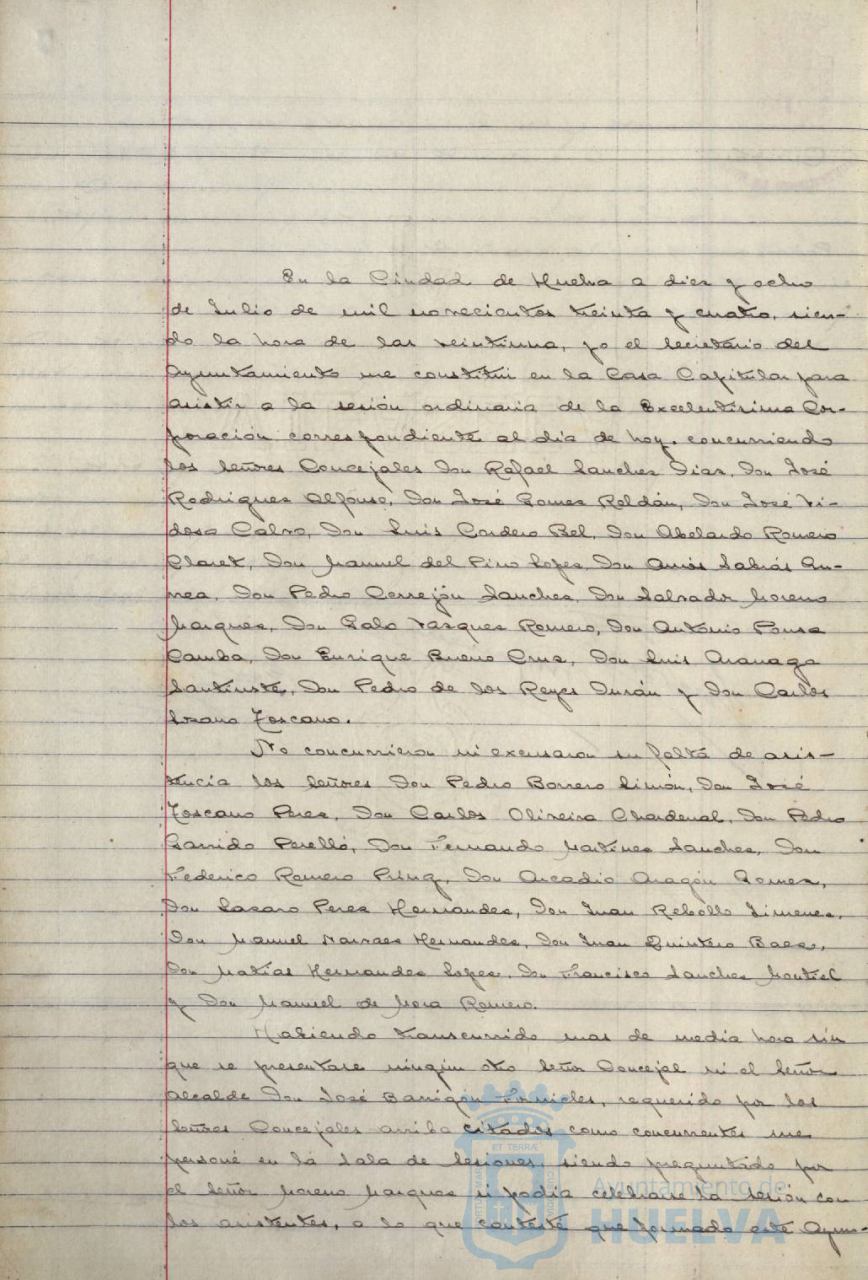 En la Ciudad de Huelva a diez y ocho
de Julio de mil novecientos treinta y cuatro, sien-
do la hora de las veintiuna, yo el Secretario del
Ayuntamiento me constituí en la Casa Capitular para
asistir a la sesión ordinaria de la Excelentísima Cor-
poración correspondiente al día de hoy, concurriendo
los Señores Concejales Don Rafael Sanchez Diaz, Don José
Rodriguez Alfonso, Don José Gomez Roldán, Don José Vi-
dosa Calvo, Don Luis Cordero Bel, Don Abelardo Romero
Claret, Don Manuel del Pino Lopez, Don Amós Sabrás Gu-
rrea, Don Pedro Cerrejón Sanchez, Don Salvador Moreno
Marquez, Don Galo Vazquez Romero, Don Antonio Pousa
Camba, Don Enrique Bueno Cruz, Don Luis Aranaga
Santuste, Don Pedro de los Reyes Durán y Don Carlos
Lozano Toscano.
No concurrieron ni excusaron su falta de asis-
tencia los Señores Don Pedro Borrero Limón, Don José
Toscano Perez, Don Carlos Oliveira Chardenal, Don Pedro
Garrido Perelló, Don Fernando Martinez Sanchez, Don
Federico Romero Don Arcadio Aragón Gomez,
Don Lazaro Perez Hernandez, Don Juan Rebollo Jimenez,
Don Manuel Narvaez Hernandez, Don Juan Quintero Baez,
Don Matías Hernandez Lopez, Don Francisco Sanchez Montiel
y Don Manuel de Mora Romero.
Habiendo transcurrido mas de media hora sin
que se presentase ningún otro Señor Concejal ni el Señor
Alcalde Don José Barrigón Fornieles, requerido por los
Señores Concejales arriba citados como concurrentes me
personé en la Sala de Sesiones, siendo preguntado por
el Señor Moreno Marquez si podía celebrarse la sesión con
los asistentes, a lo que contesté que formado este Ayun-
ET TERRÆ
Ayuntamiento de
HUELVA